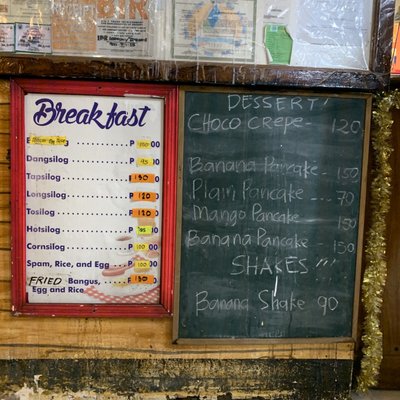 Breakfast
Dangsilog P 95
Tapsilog P 130
Longsilog P 120
Tosilog P 120
Hotsilog P 95
Cornsilog P 100
Spam, Rice, and Egg P 100
FRIED Bangus, P 130
Egg and Rice
DESSERT!
CHOCO CREPE- 120
Banana Pancake- 150
Plain Pancake --- 70
Mango Pancake 150
Banana Pancake- 150
SHAKES!!!
Banana Shake 90